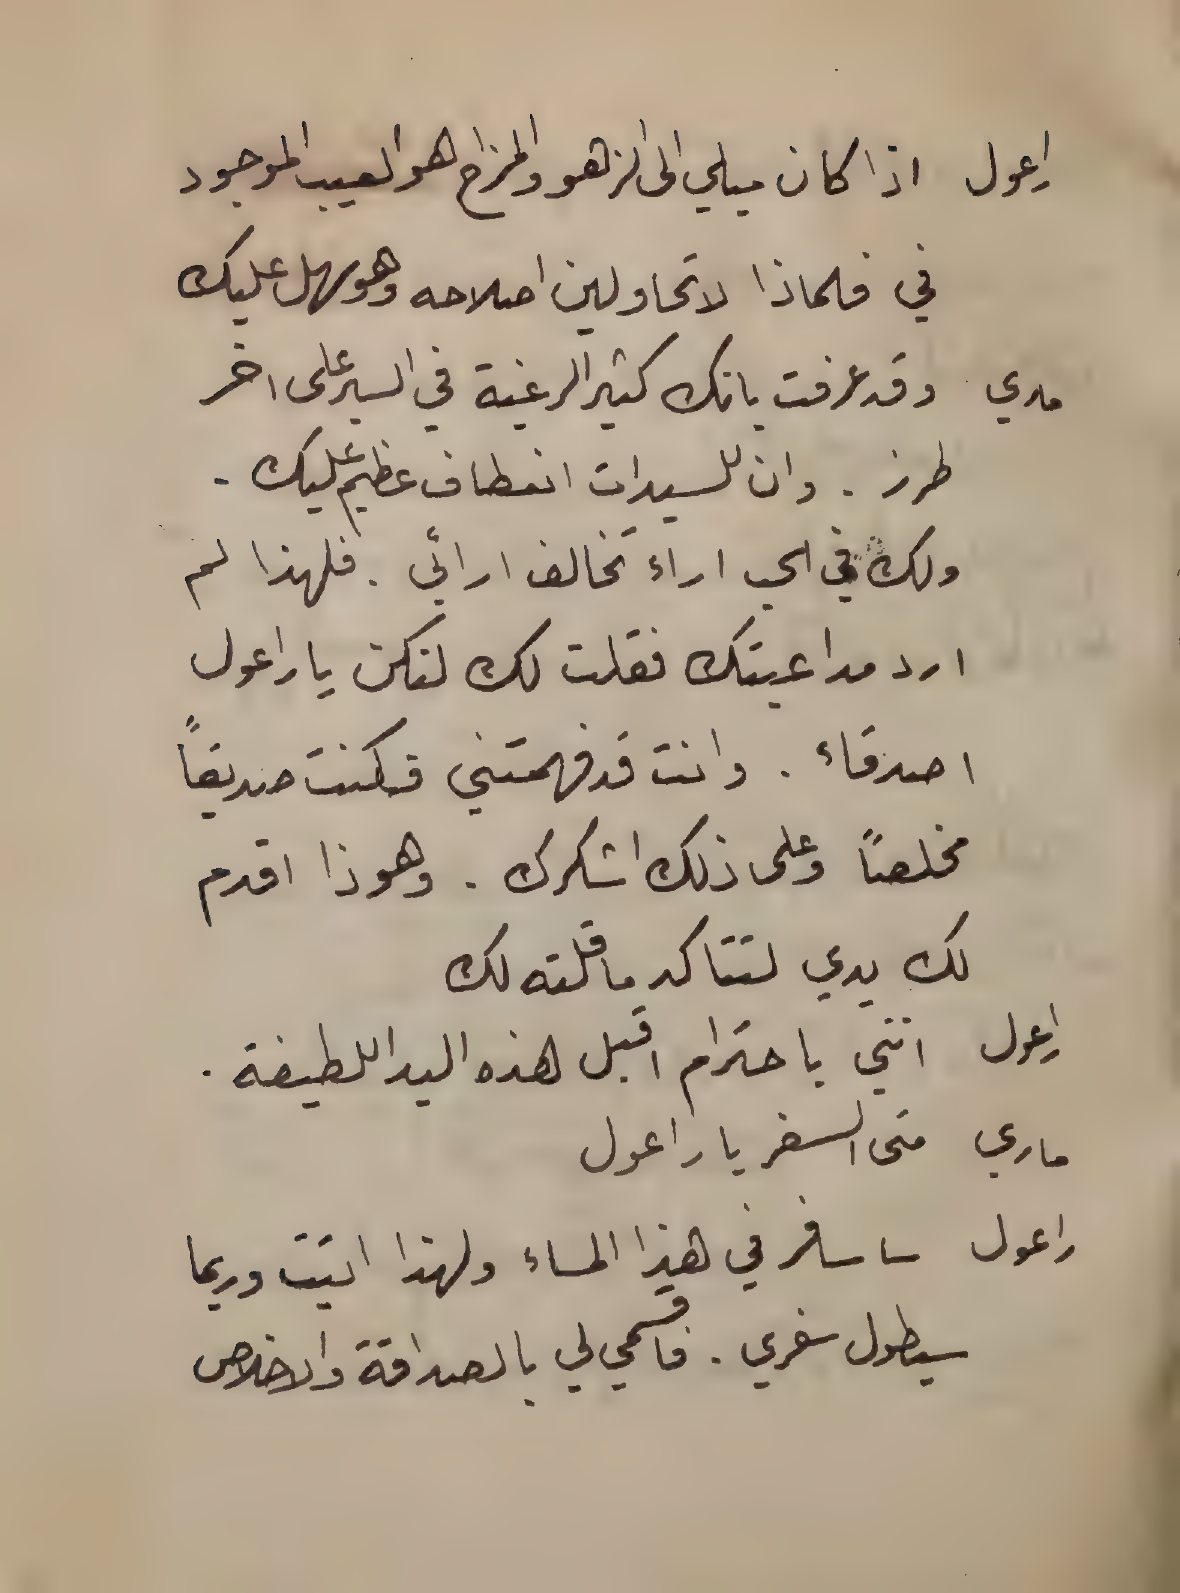 راعول اذا كان ميلي الى الزهو والمزاح هو العيب الموجود
في فلماذا لا تحاولين اصلاحه وهو سهل عليك
ماري وقد عرفت بانك كثير الرغبة في السير على اخر
طرز . وان للسيدات انعطاف عظيم عليك .
ولك في الحب اراء تخالف ارائي . فلهذا لم
ارد مداعبتك فقلت لك لنكن يا راعول
اصدقاء . وانت قد فهمتني فكنت صديقاً
مخلصاً وعلى ذلك اشكرك . وهوذا اقدم
لك يدي لتتاكد ما قلته لك
راعول انني باحترام اقبل هذه اليد اللطيفة .
ماري متى السفر يا راعول
راعول ساسافر في هذا المساء ولهذا اتيت وربما
سيطول سفري . فاقسمي لي بالصداقة والاخلاص